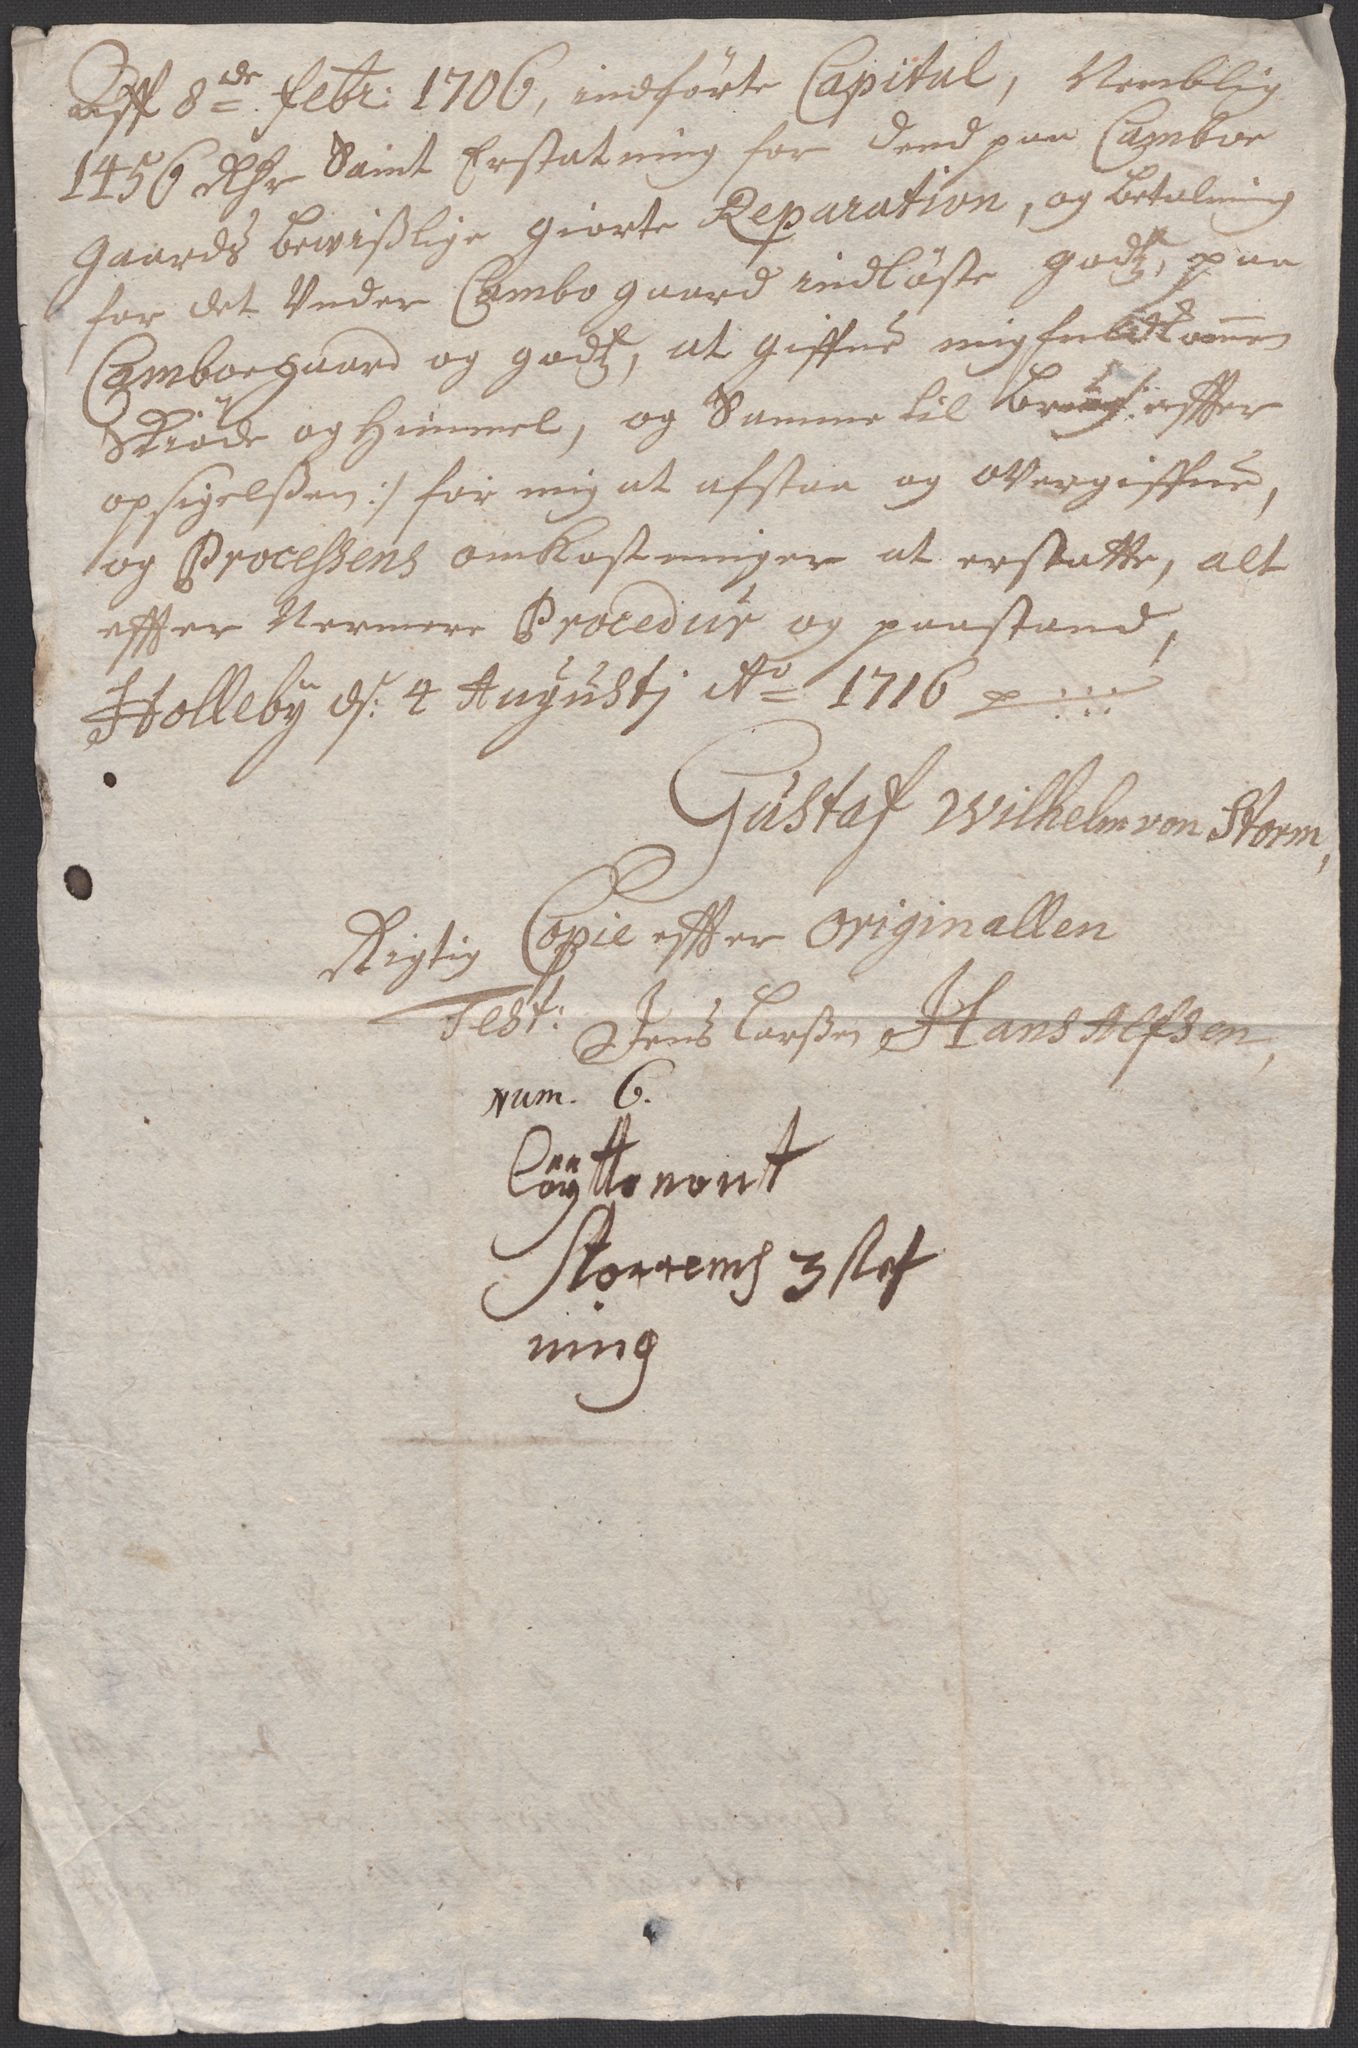 Aff 8de Febr: 1706, indførte Capital, Nemblig
1456 Rdr Samt Erstatning for dend paa Camboe
gaards bewißlige giorte Reparation, og betalning
for det Vnder Cambo gaard indløste godtz, paa
Camboegaard og godtz, at giffue mig fuldkommen
Skiøde og Himmel, og Samme til brug /: effter
opsigelßen :/ for mig at afstaa og overgiffue,
og Processens omkostninger at erstatte, alt
effter Nermere Procedur og paastand,
Holleby ds: 4 Augustj Ao 1716
Gustaf Wilhelm von Storm,
Rigtig Copie effter originallen
Test: Jens Larßen Hans Alfsen,
Num. 6.
Løyttenant
Storremß 3 stef
ning